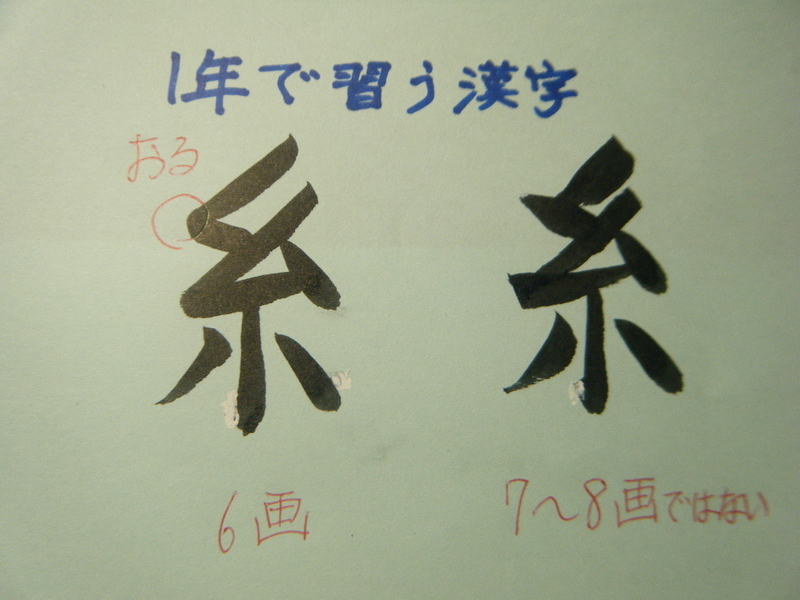 1年で習う漢字
おる
糸 糸
6画 7〜8画ではない